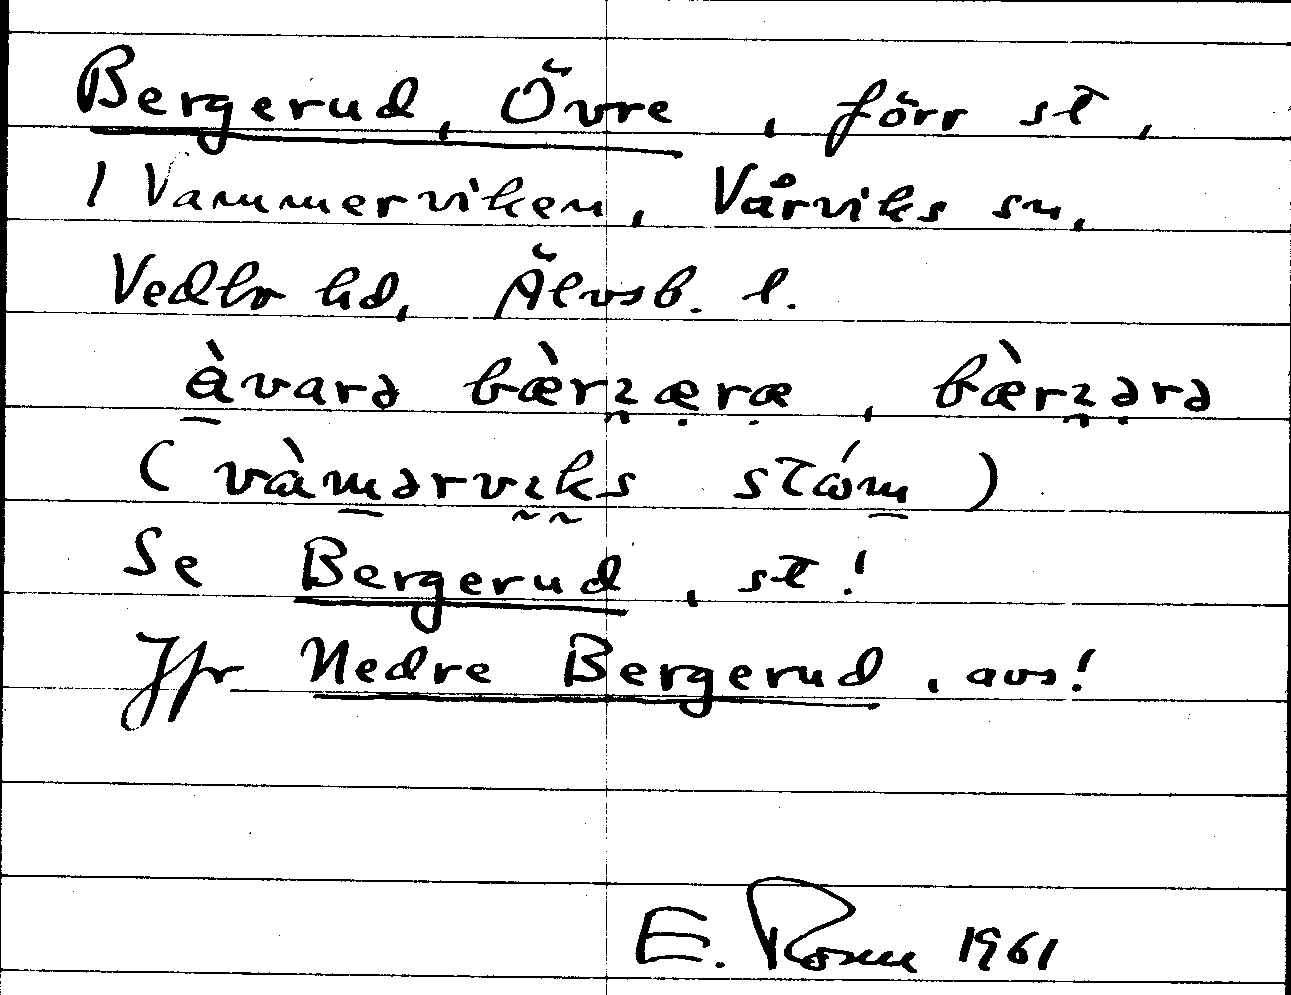 Bergerud, Övre, förr st,
i Vammerviken, Vårviks sn,
Vedbo hd, Älvsb. l.
àvarə bæ̀rzæ̣rạ, bæ̀rzə̣rə
(vàmərviks stóm)
Se Bergerud, st!
Jfr Nedre Bergerud, avs!
E. Rosen 1961